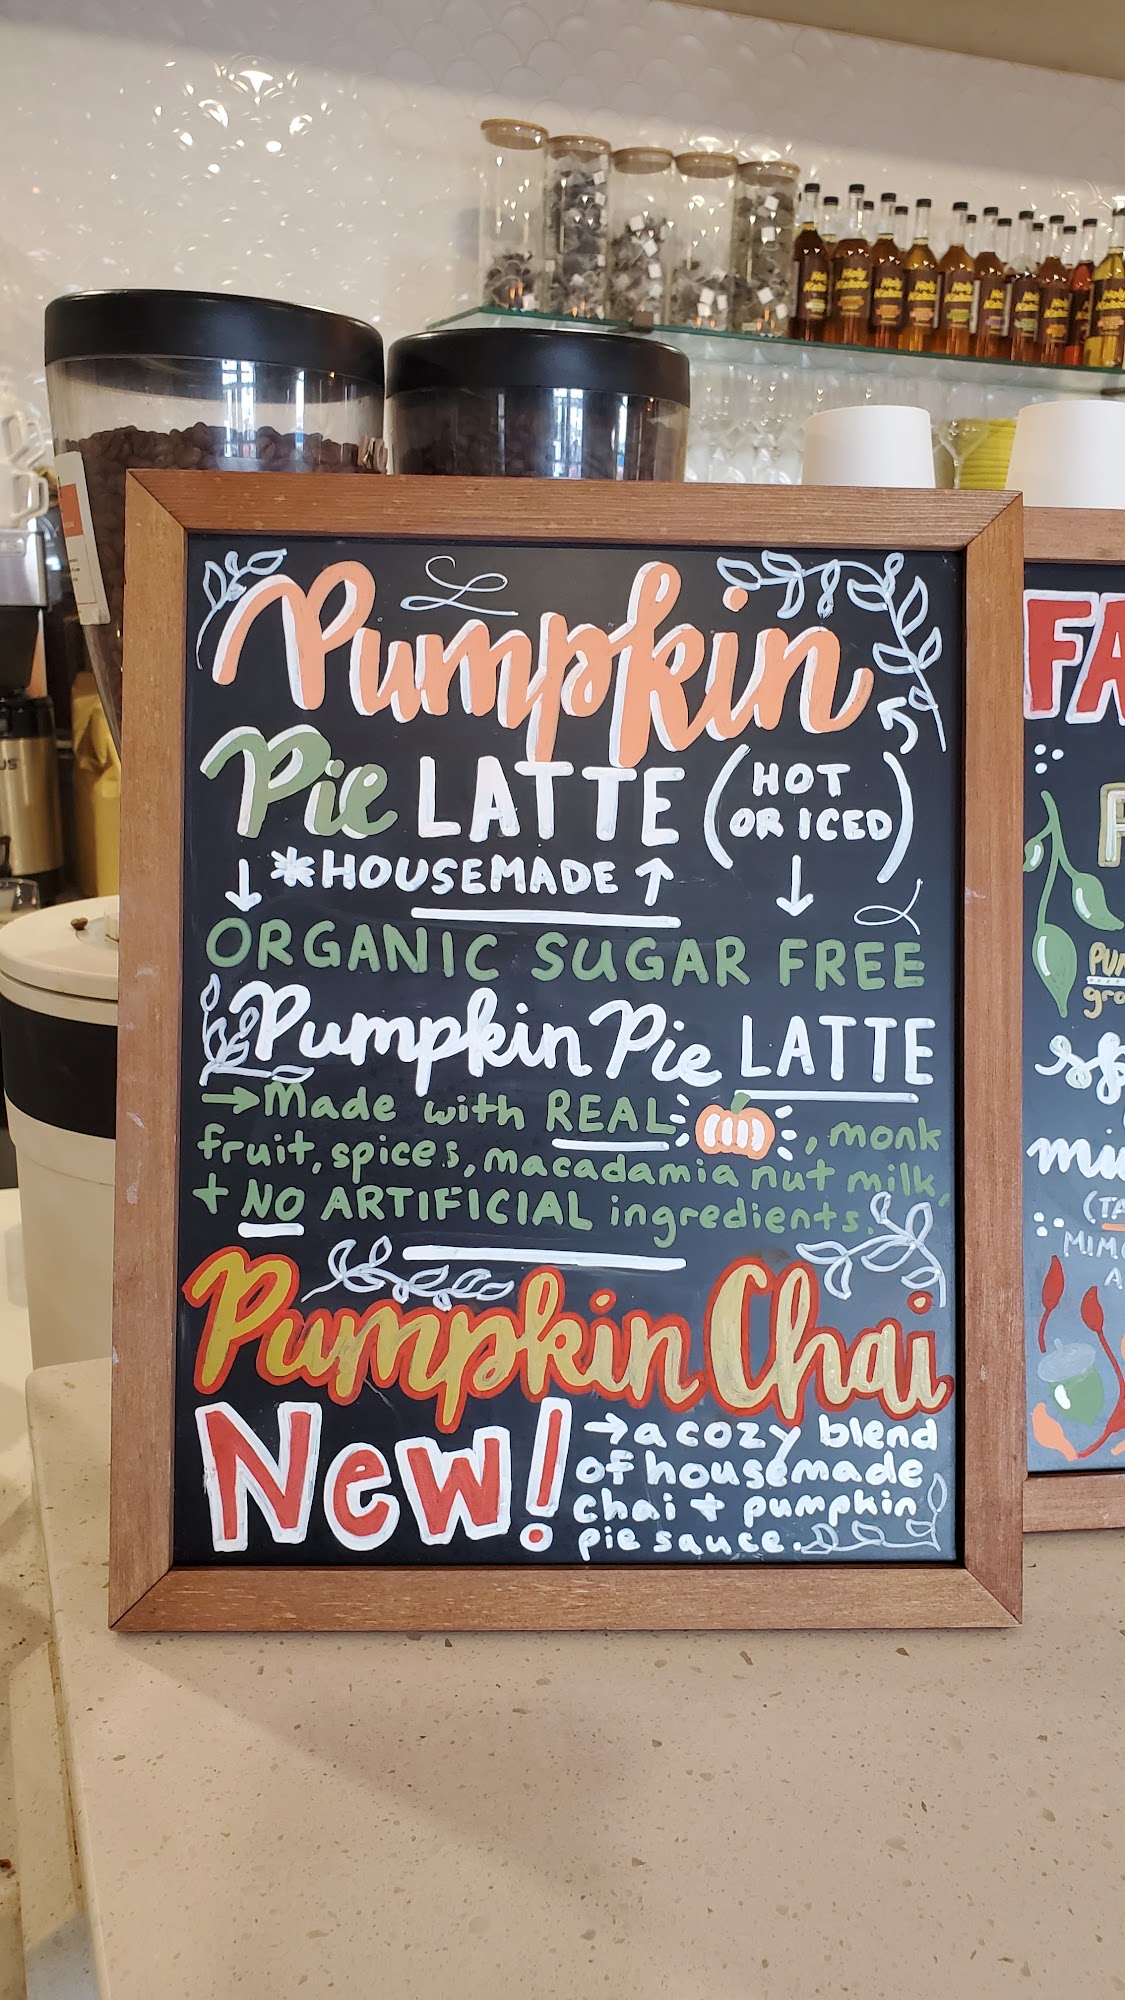 Pumpkin
Pie LATTE (HOT OR ICED)
*HOUSEMADE
ORGANIC SUGAR FREE
Pumpkin Pie LATTE
→Made with REAL , monk
fruit, spices, macadamia nut milk,
+ NO ARTIFICIAL ingredients.
Pumpkin Chai
New!
→a cozy blend
of housemade
chai + pumpkin
pie sauce.
FA
PUM
gro
sp
mi
(TA
MIM
A
Holy
Kakow